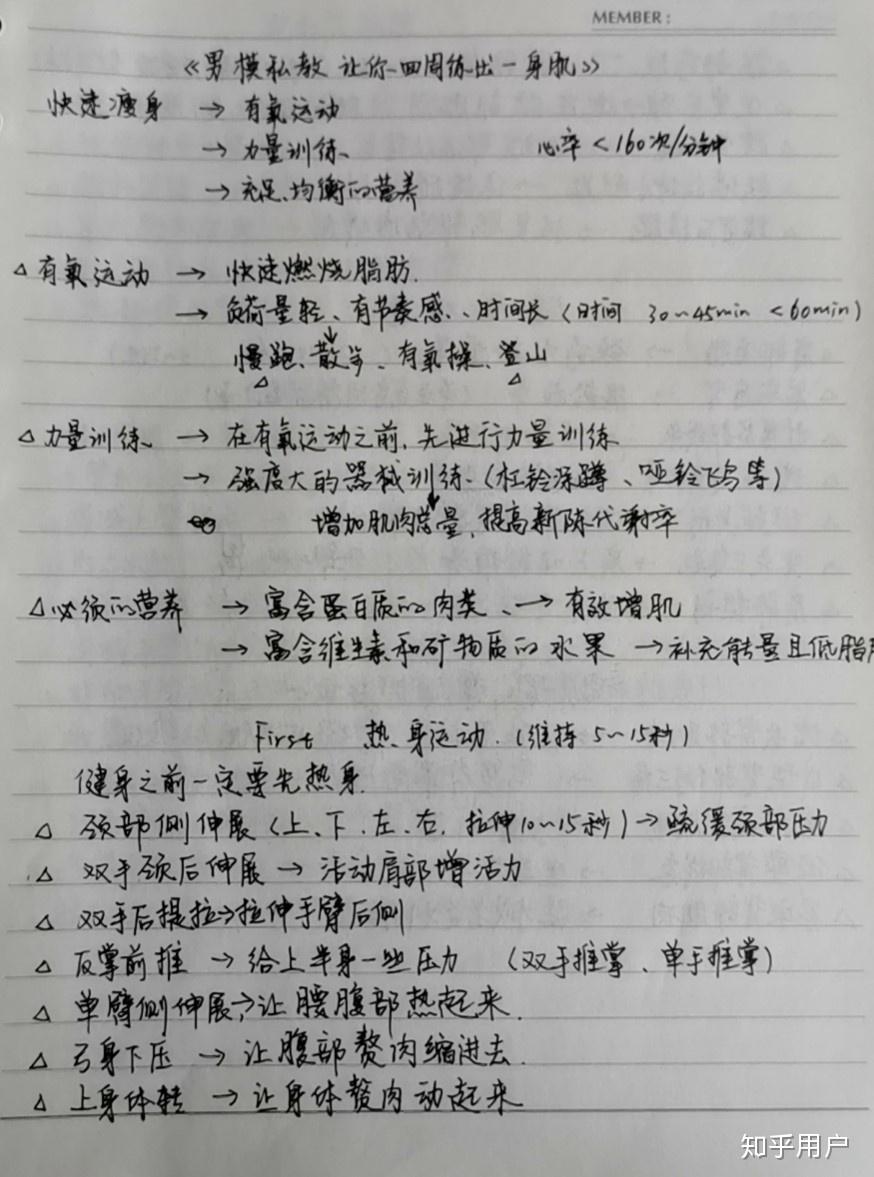 MEMBER:
《男模私教 让你四周练出一身肌》
快速瘦身 → 有氧运动
→ 力量训练、 心率 < 160次/分钟
→ 充足、均衡的营养
△ 有氧运动 → 快速燃烧脂肪.
→ 负荷量轻、有节奏感、、时间长 (时间 30~45min < 60min)
↓
慢跑、散步、有氧操、登山
△ △
△ 力量训练、 → 在有氧运动之前, 先进行力量训练
→ 强度大的器械训练、(杠铃深蹲、哑铃飞鸟等)
↓
增加肌肉总量, 提高新陈代谢率
△ 必须的营养 → 富含蛋白质的肉类、→ 有效增肌
→ 富含维生素和矿物质的水果 → 补充能量且低脂肪
First 热身运动. (维持 5~15秒)
健身之前一定要先热身.
△ 颈部侧伸展 (上、下、左、右, 拉伸10~15秒) → 疏缓颈部压力
△ 双手颈后伸展 → 活动肩部增活力
△ 双手后提拉 → 拉伸手臂后侧
△ 反掌前推 → 给上半身一些压力 (双手推掌、单手推掌)
△ 单臂侧伸展 → 让腰腹部热起来.
△ 弓身下压 → 让腹部赘肉缩进去.
△ 上身体转 → 让身体赘肉动起来
知乎用户